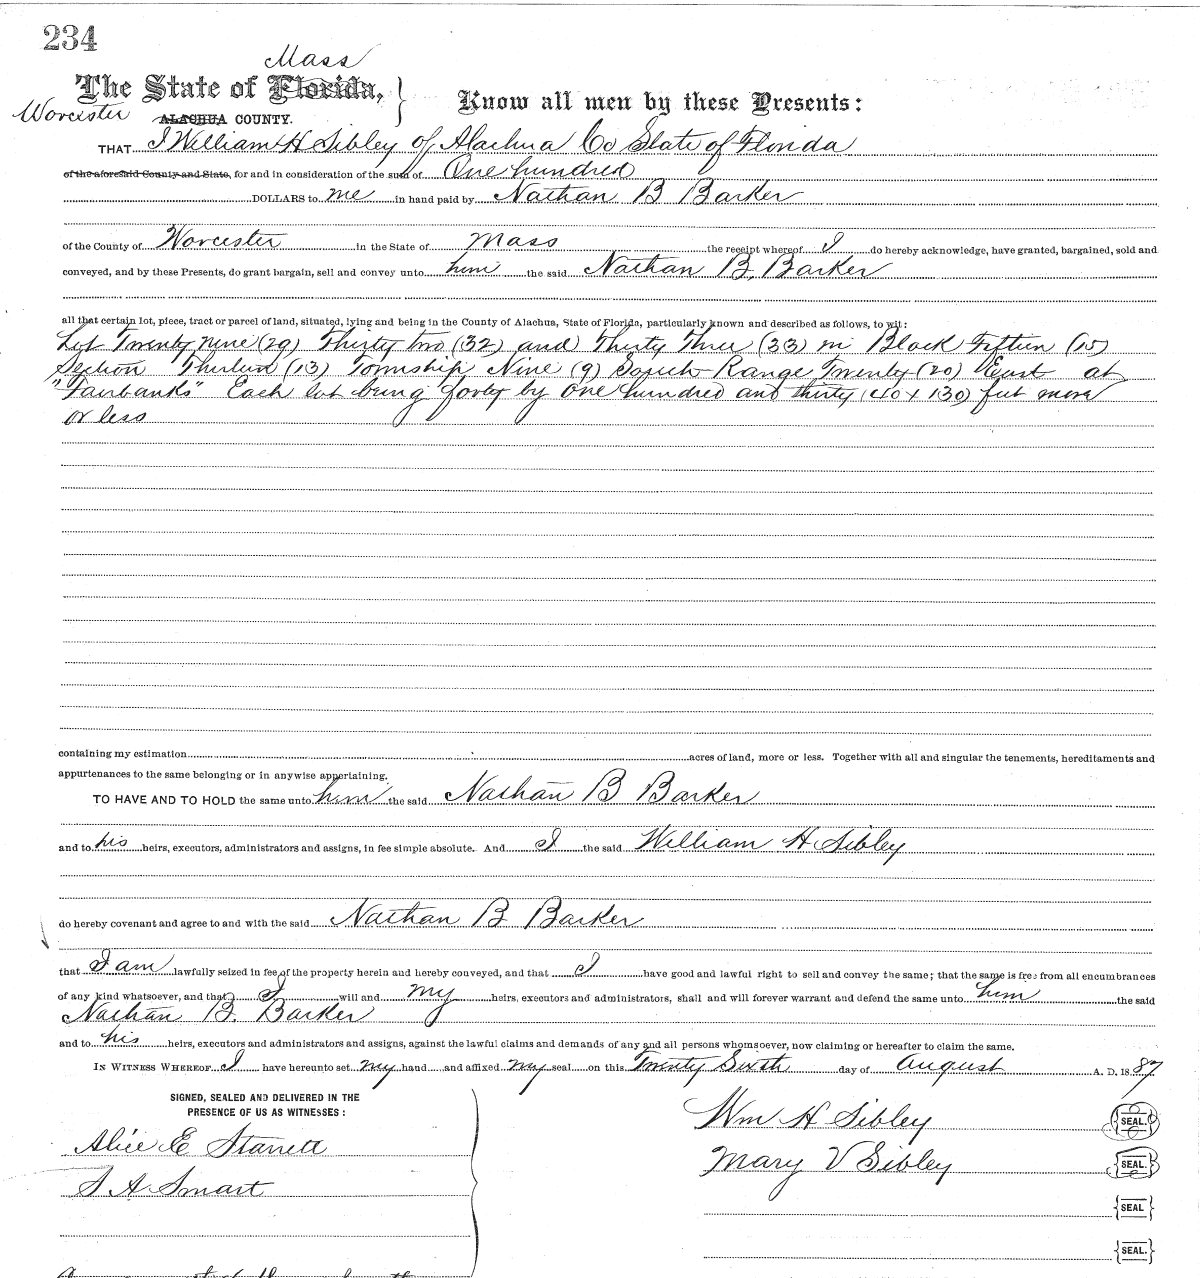 234
Mass
The State of Florida,
Know all men by these Presents:
Worcester ALACHUA COUNTY.
THAT I William H Sibley of Alachua Co State of Florida
of the aforesaid County and State, for and in consideration of the sum of One hundred
DOLLARS to me in hand paid by Nathan B Barker
of the County of Worcester in the State of Mass the receipt whereof I do hereby acknowledge, have granted, bargained, sold and
conveyed, and by these Presents, do grant bargain, sell and convey unto him the said Nathan B. Barker
all that certain lot, piece, tract or parcel of land, situated, lying and being in the County of Alachua, State of Florida, particularly known and described as follows, to wit:
Lot Twenty nine (29) Thirty two (32) and Thirty Three (33) in Block Fifteen (15)
Section Thirteen (13) Township Nine (9) South Range Twenty (20) East at
"Fairbanks" Each lot being forty by One hundred and thirty (40 x 130) feet more
or less
containing my estimation acres of land, more or less. Together with all and singular the tenements, hereditaments and
appurtenances to the same belonging or in anywise appertaining.
TO HAVE AND TO HOLD the same unto him the said Nathan B Barker
and to his heirs, executors, administrators and assigns, in fee simple absolute. And I the said William H Sibley
do hereby covenant and agree to and with the said Nathan B Barker
that I am lawfully seized in fee of the property herein and hereby conveyed, and that I have good and lawful right to sell and convey the same; that the same is free from all encumbrances
of any kind whatsoever, and that I will and my heirs, executors and administrators, shall and will forever warrant and defend the same unto him the said
Nathan B. Barker
and to his heirs, executors and administrators and assigns, against the lawful claims and demands of any and all persons whomsoever, now claiming or hereafter to claim the same.
IN WITNESS WHEREOF I have hereunto set my hand and affixed my seal on this Twenty Sixth day of August A. D. 1887
SIGNED, SEALED AND DELIVERED IN THE
PRESENCE OF US AS WITNESSES:
Wm H Sibley SEAL.
Alice E Starrett
Mary V Sibley SEAL.
S A Smart
SEAL
SEAL.